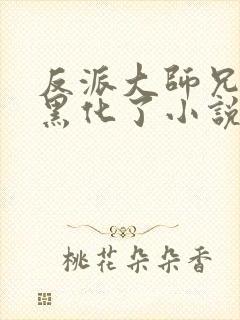 反派大師兄
黑化了小說
桃花朵朵香